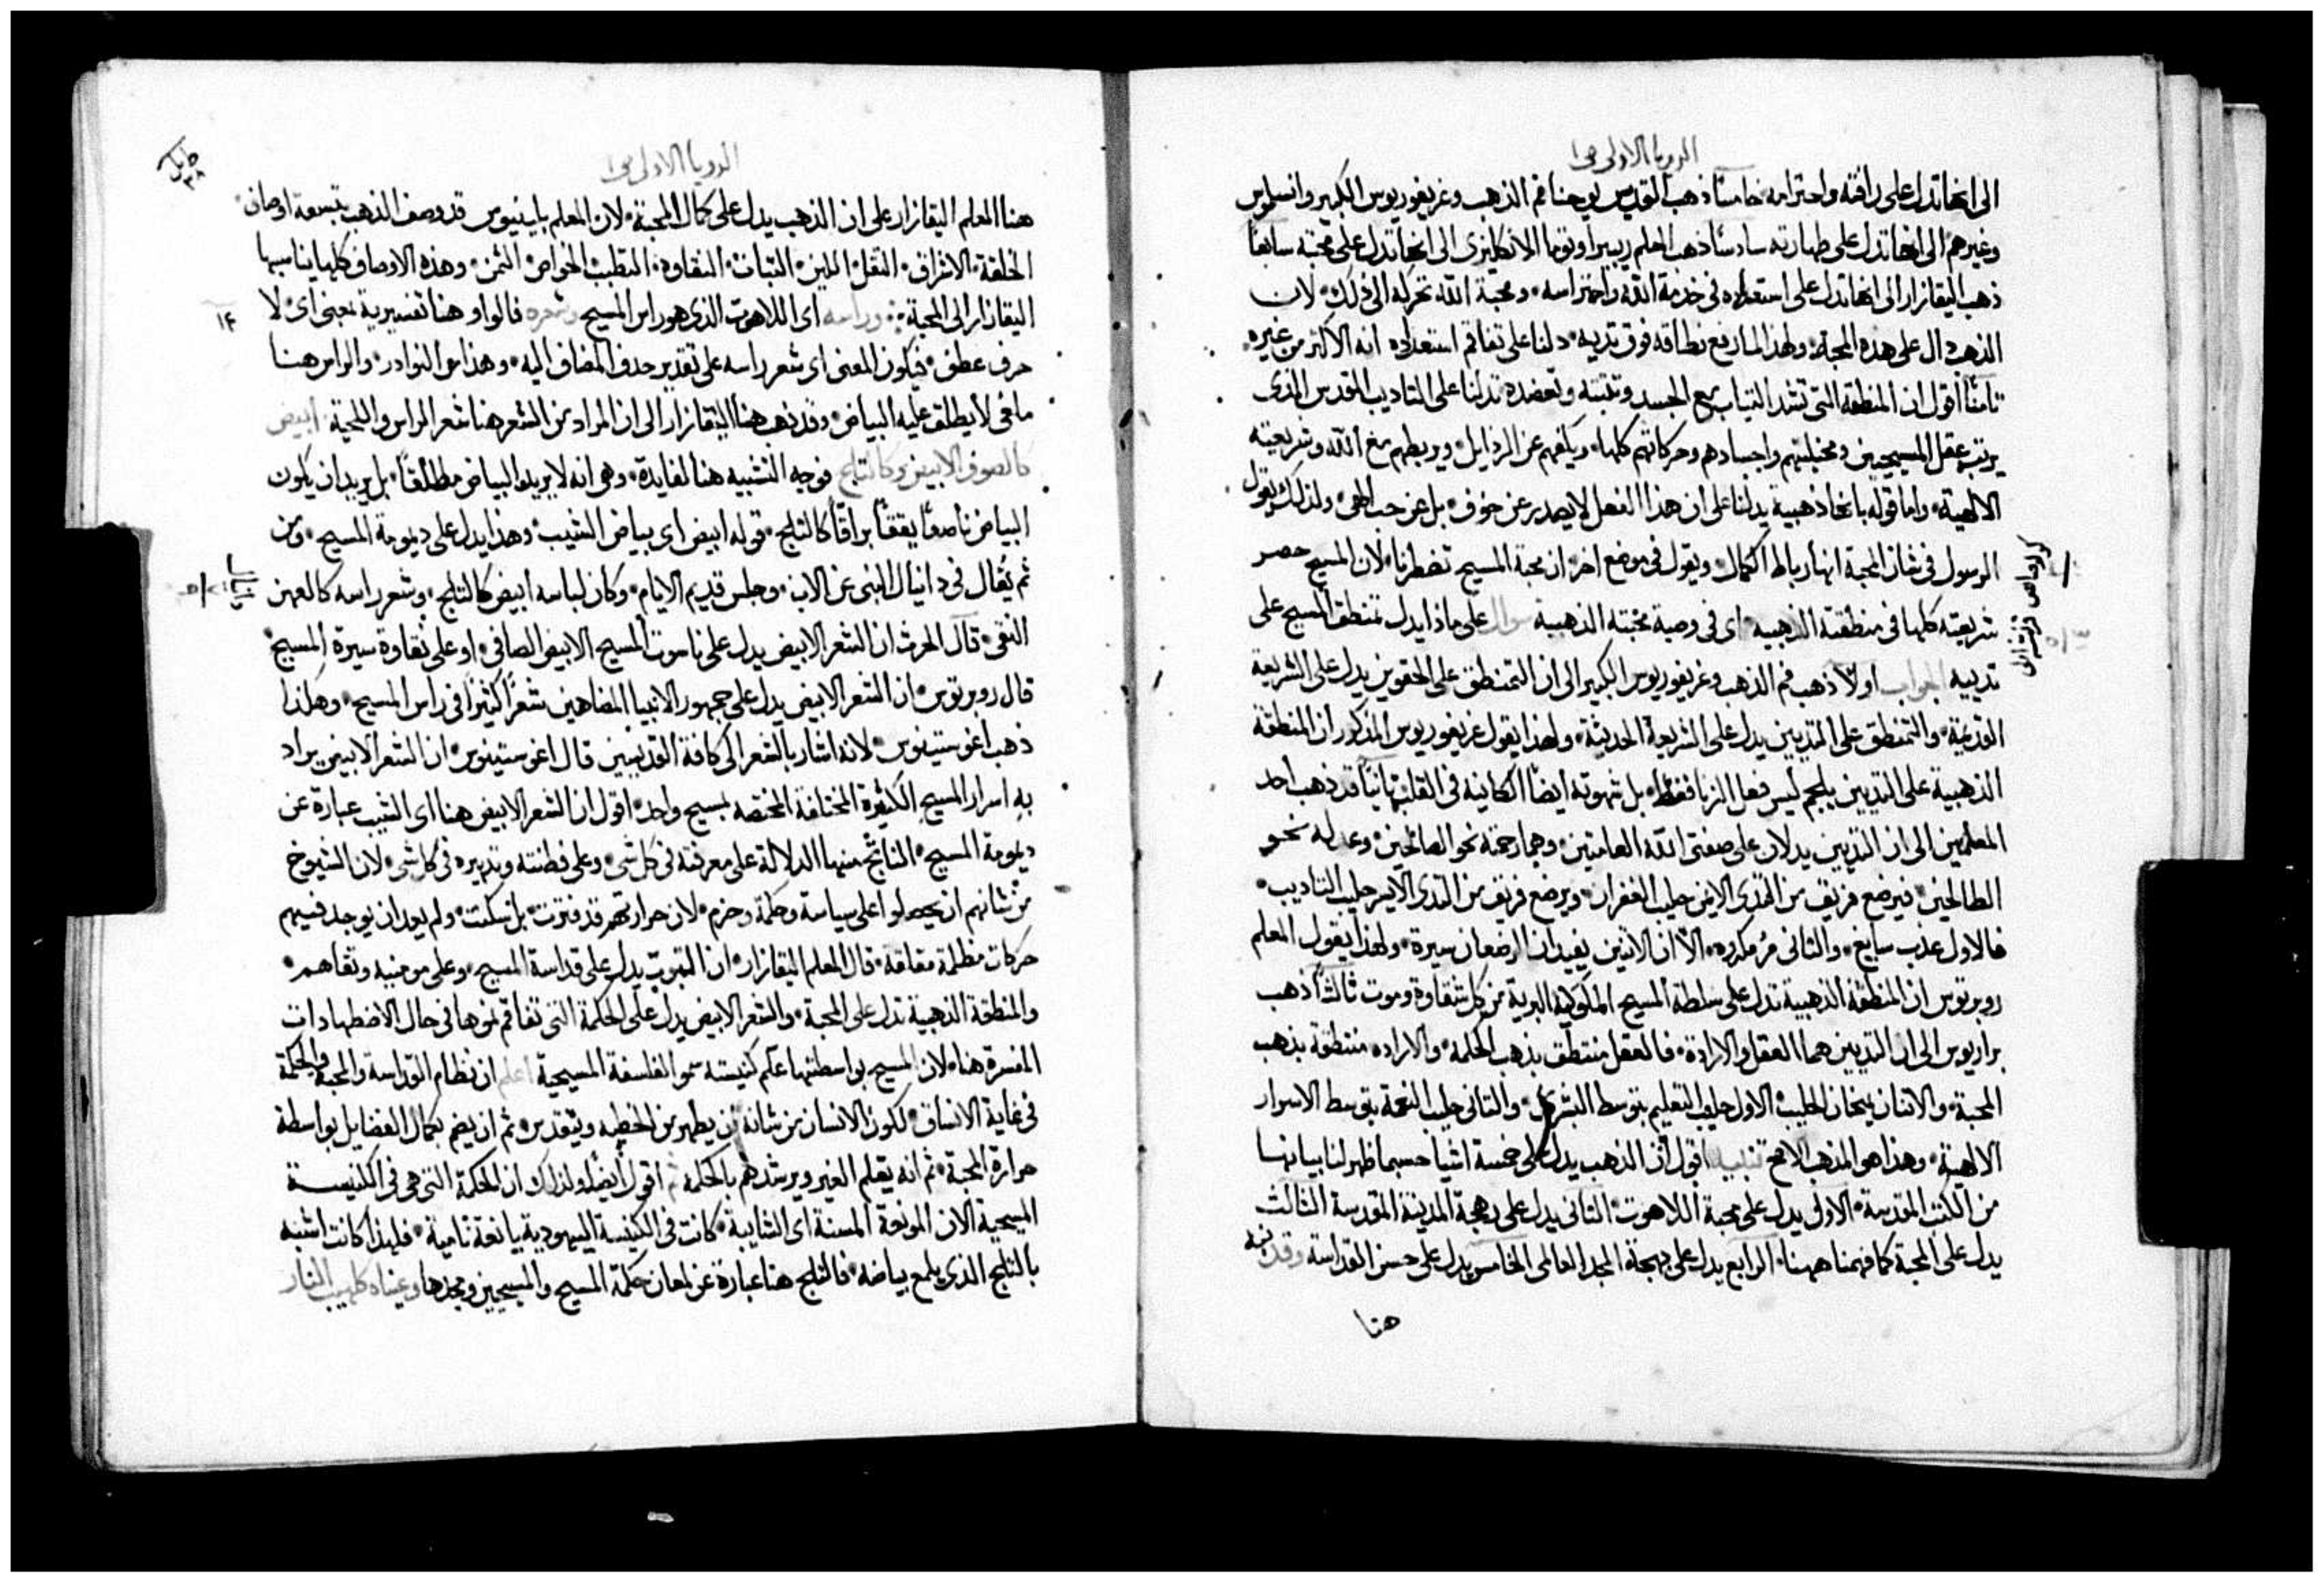 الرويا الاولى ص ١
الى انها تدل على رافته واحترامه خامسًا ذهب القديس يوحنا فم الذهب وغريغوريوس الكبير وانسلموس
وغيرهم الى انها تدل على طهارته سادسًا ذهب المعلم ربيرا وتوما الانكليزى الى انها تدل على محبته سابعًا
ذهب اليقازار الى انها تدل على استعداده فى خدمة الله واحتراسه ومحبة الله تحركه الى ذلك لان
الذهب دال على هذه المحبة ولهذا لما رفع نطاقه فوق ثدييه دلنا على تفاقم استعداده انه الاكثر من غيره
ثامنًا اقول ان المنطقة التى تشد الثياب مع الجسد وتثبته وتعضده تدلنا على التاديب المقدس الذى
يرتب عقل المسيحيين ومخيلتهم واجسادهم وحركاتهم كلها ويكفهم عن الرذايل ويربطهم مع الله وشريعته
الالهية واما قوله بانها ذهبية يدلنا على ان هذا الفعل لا يصدر عن خوف بل عن حب الهى ولذلك يقول
الرسول فى شان المحبة انها رباط الكمال ويقول فى موضع اخر ان محبة المسيح تضطرنا لان المسيح حصر
شريعته كلها فى منطقته الذهبيه اى فى وصية محبته الذهبية سوال على ماذا يدل تمنطق المسيح على
ثدييه الجواب اولًا ذهب فم الذهب وغريغوريوس الكبير الى ان التمنطق على الحقوين يدل على الشريعة
القديمة والتمنطق على الثديين يدل على الشريعة الحديثة ولهذا يقول غريغوريوس المذكور ان المنطقة
الذهبية على الثديين يلجم ليس فعل الزنا فقط بل شهوته ايضًا الكاينه فى القلب ثانيًا قد ذهب احد
المعلمين الى ان الثديين يدلان على صفتى الله العامتين وهما رحمته نحو الصالحين وعدله نحو
الطالحين فيرضع فريق من الثدى الايمن حليب الغفران ويرضع فريق من الثدى الايسر حليب التاديب
فالاول عذب سايغ والثانى مر مكره الا ان الاثنين يفيدان الرضعان سيرة ولهذا يقول المعلم
روبرتوس ان المنطقة الذهبية تدل على سلطة المسيح الملوكية البرية من كل شقاوة وموت ثالثًا ذهب
براريوس الى ان الثديين هما العقل والارادة فالعقل منتطق بذهب الحكمة والاراده منتطقة بذهب
المحبة والاثنان يمنحان الحليب الاول حليب التعليم بتوسط البشرى والثانى حليب النعمة بتوسط الاسرار
الالهية وهذا هو المذهب الاصح تنبيه اقول ان الذهب يدل على خمسة اشيا حسبما ظهر لنا بيانها
من الكتب المقدسة الاول يدل على محبة اللاهوت الثانى يدل على بهجة المدينة المقدسة الثالث
يدل على المحبة كما فهمنا ههنا الرابع يدل على بهجة المجد العالمى الخامس يدل على حسن القداسة وقد نبه
هنا
الرويا الاولى ص ١
هنا المعلم اليقازار على ان الذهب يدل على كمال المحبة لان المعلم بايينيوس قد وصف الذهب بتسعة اوصاف
الخلقة الاشراق الثقل اللين الثبات النقاوة التطبب الخواص الثمن وهذه الاوصاف كلها يناسبها
اليقازار الى المحبة وراسه اى اللاهوت الذى هو راس المسيح وشعره فالواو هنا تفسيرية بمعنى اى لا
١٤
حرف عطف فيكون المعنى اى شعر راسه على تقدير حذف المضاف اليه وهذا من النوادر والراس هنا
مافى لا يطلق عليه البياض وقد ذهب هنا اليقازار الى ان المراد من الشعر هنا شعر الراس واللحية ابيض
كالصوف الابيض وكالثلج فوجه التشبيه هنا لفايدة وهى انه لا يريد البياض مطلقًا بل يريد ان يكون
البياض ناصعًا يققًا براقًا كالثلج قوله ابيض اى بياض الشيب وهذا يدل على ديمومة المسيح ومن
ثم يقال فى دانيال النبى عن الاب وجلس قديم الايام وكان لباسه ابيض كالثلج وشعر راسه كالعهن
النقى قال الحرث ان الشعر الابيض يدل على ناسوت المسيح الابيض الصافى او على نقاوة سيرة المسيح
قال روبرتوس ان الشعر الابيض يدل على جمهور الانبيا المضاهين شعرًا كثيرًا فى راس المسيح وهكذا
ذهب اغوستينوس لانه اشار بالشعر الى كافة القديسين قال اغوستينوس ان الشعر الابيض يراد
به اسرار المسيح الكثيرة المختلفة المختصه بمسيح واحد اقول ان الشعر الابيض هنا اى الشيب عبارة عن
ديمومة المسيح الناتج منها الدلالة على معرفته فى كل شى وعلى فطنته وتدبيره فى كل شى لان الشيوخ
من شانهم ان يحصلوا على سياسة وحكمة وحزم لان حرارتهم قد فترت بل سكنت ولم يعد ان يوجد فيهم
حركات مظلمة مقلقة قال المعلم اليقازار ان الثوب يدل على قداسة المسيح وعلى مومنيه وتقاهم
والمنطقة الذهبية تدل على المحبة والشعر الابيض يدل على الحكمة التى تفاقم نموها فى حال الاضطهادات
المفسرة هنا لان المسيح بواسطتها علم كنيسته سمو الفلسفة المسيحية اعلم ان نظام القداسة والمحبة والحكمة
فى غاية الاتساق لكون الانسان من شانه ان يطهر من الخطيه ويتقدس ثم ان يضم بكمال الفضايل بواسطة
حرارة المحبة ثم انه يعلم الغير ويرشدهم بالحكمة ثم اقول ايضًا ولذلك ان الحكمة التى هى فى الكنيسة
المسيحية الان المونحة المسنة اى الشايبة كانت فى الكنيسة اليهودية يانعة نامية فلهذا كانت اشبه
بالثلج الذى يلمع بياضه فالثلج هنا عبارة عن لمعان حكمة المسيح والمسيحيين ومجدها وعيناه كلهيب النار